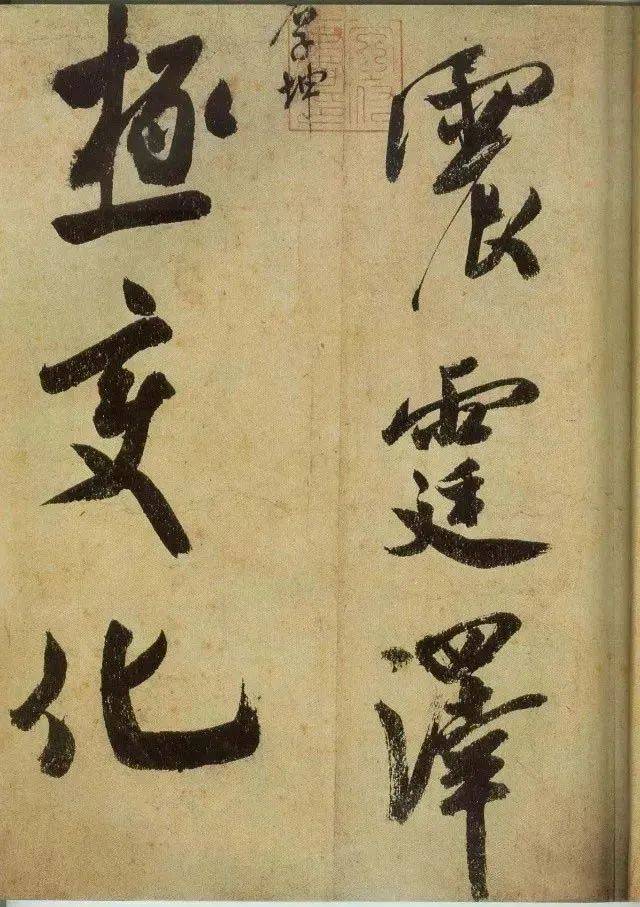 震霆澤
坤
極变化